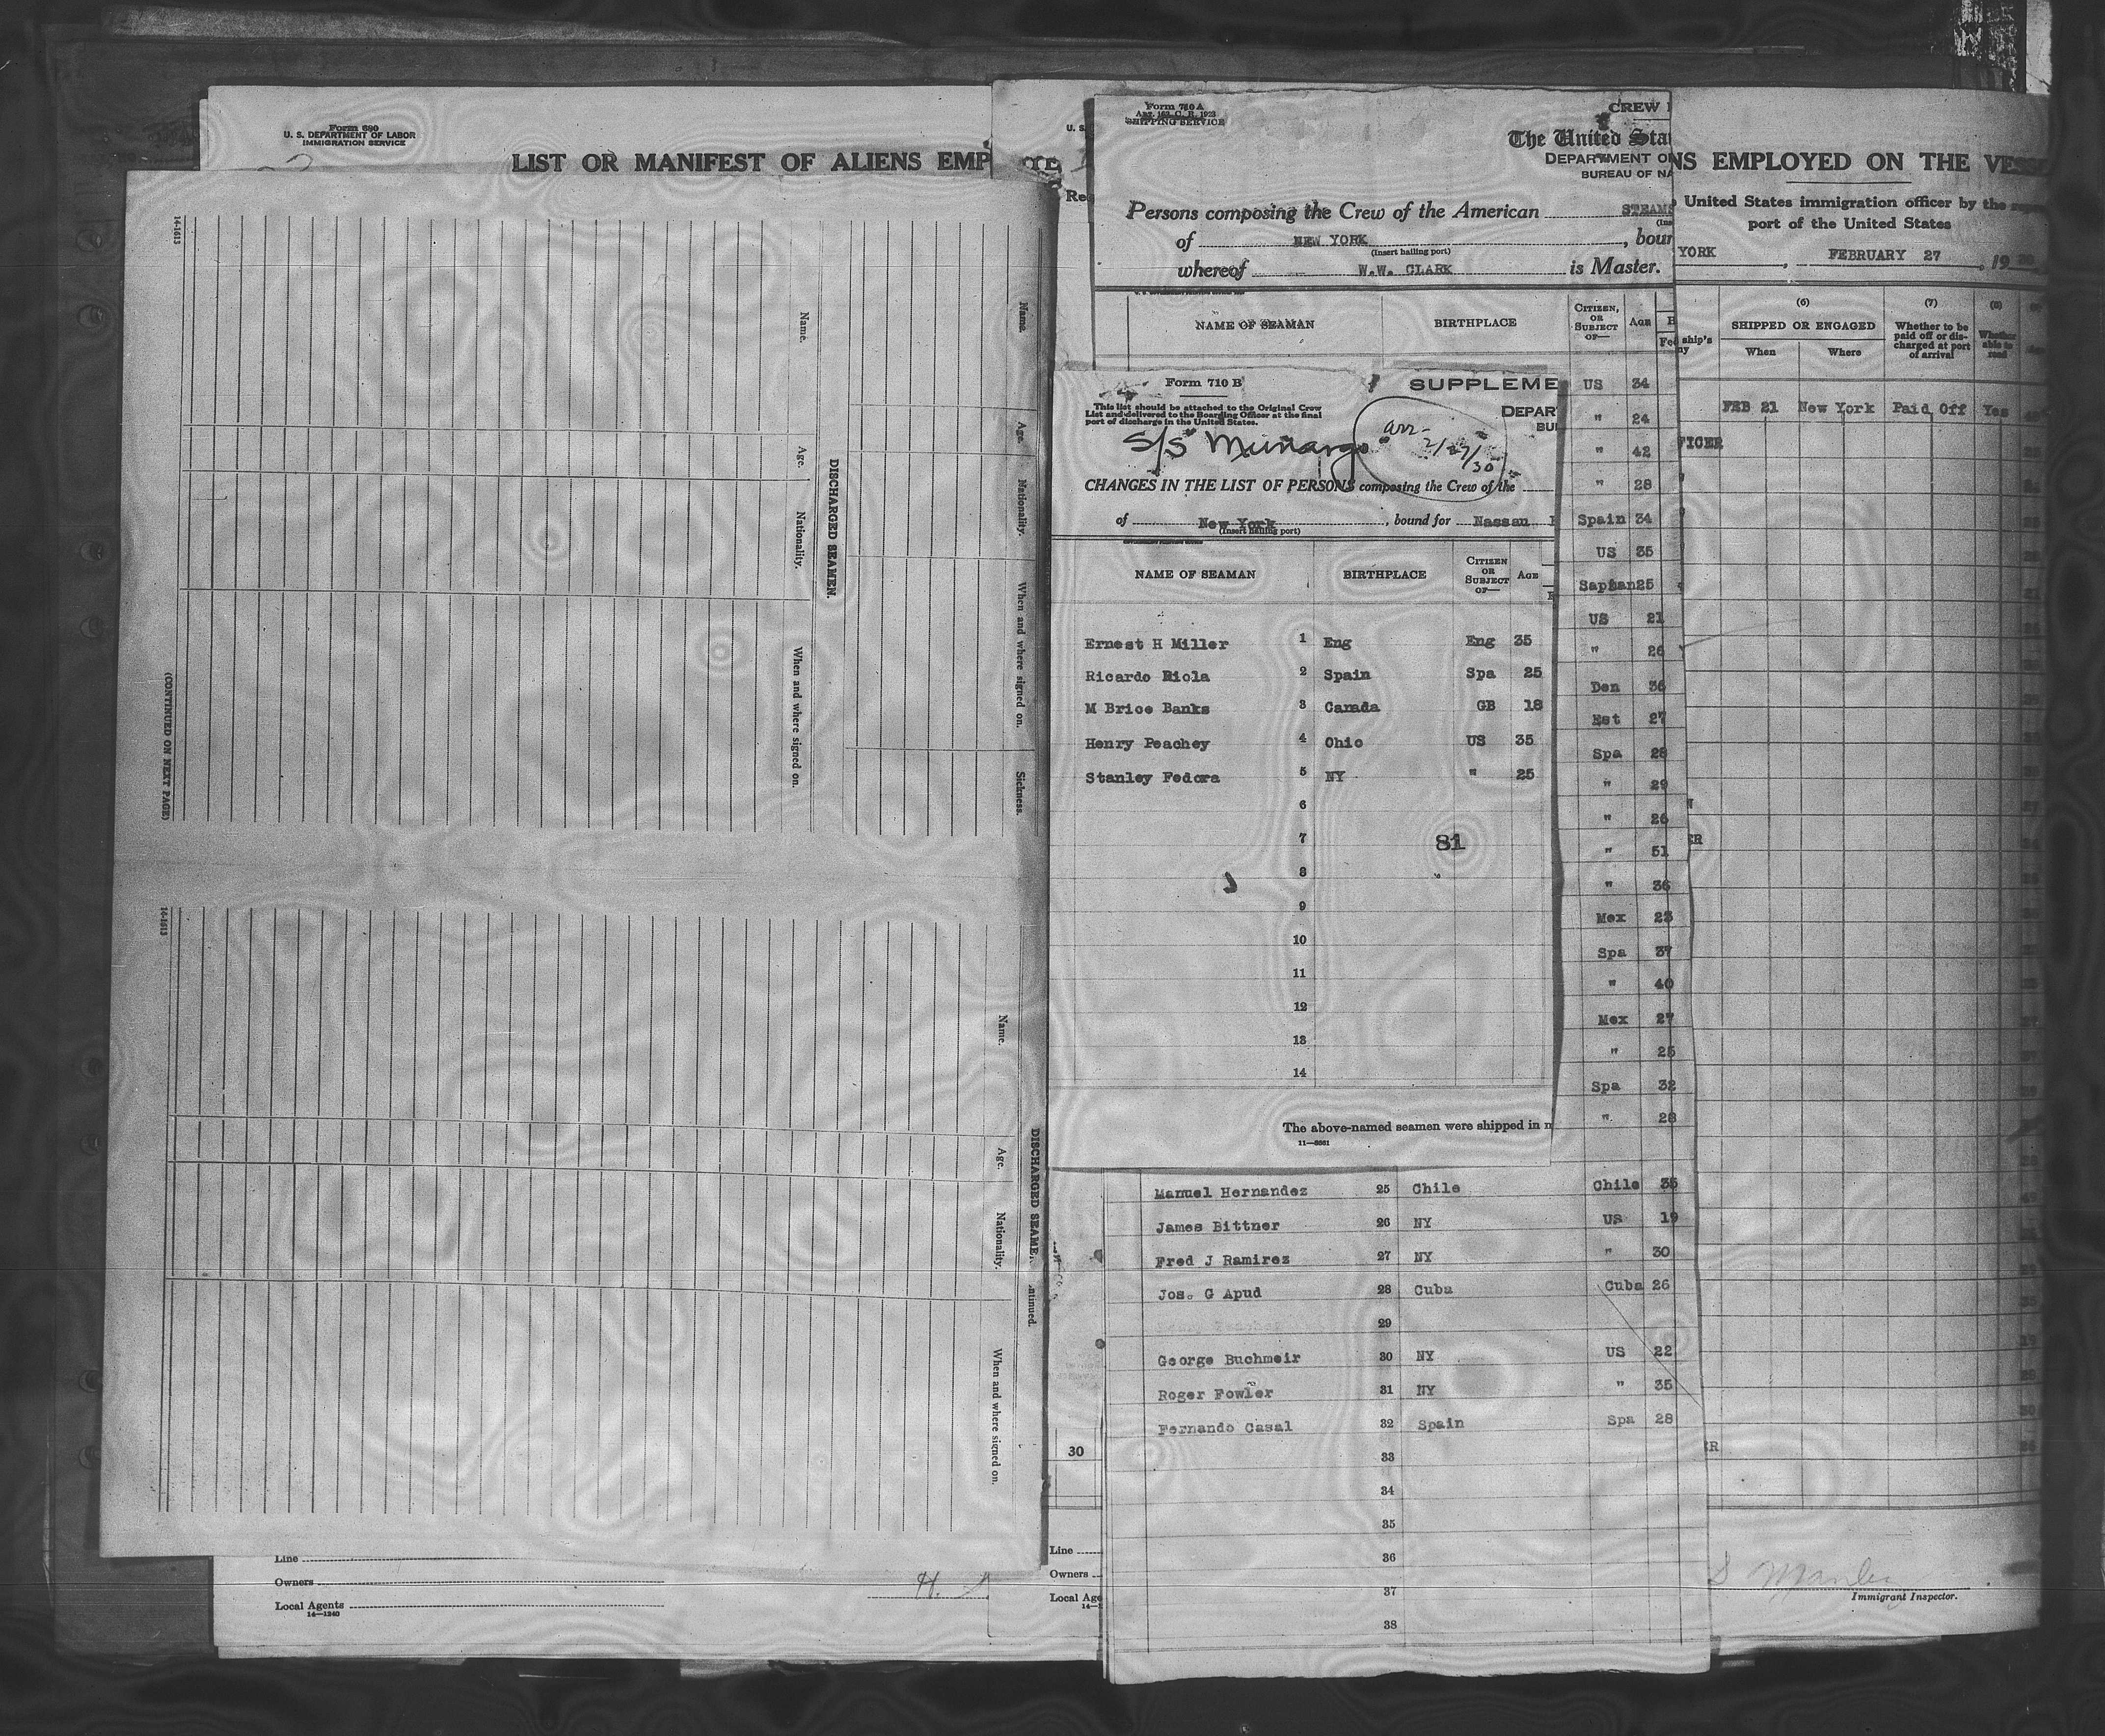 Form 680
U. S. DEPARTMENT OF LABOR
IMMIGRATION SERVICE
LIST OR MANIFEST OF ALIENS EMP
14-1613
Name.
Age.
Nationality.
When and where signed on.
Sickness.
DISCHARGED SEAMEN.
Name.
Age.
Nationality.
When and where signed on.
(CONTINUED ON NEXT PAGE)
14-1613
DISCHARGED SEAME
ntinued.
Name.
Age.
Nationality.
When and where signed on.
Line
Owners
Local Agents
14—1240
H.
U. S.
Req
30
Line
Owners
Local Age
14—1
Form 710 A
SHIPPING SERVICE
CREW
The United Sta
DEPARTMENT O
BUREAU OF NA
Persons composing the Crew of the American STEAMS
of NEW YORK , boun
(Insert hailing port)
whereof W.W. CLARK is Master.
NAME OF SEAMAN BIRTHPLACE CITIZEN, OR SUBJECT OF— AGE
US 34
" 24
" 42
" 28
Spain 34
US 35
25
US 21
" 26
Den 36
Est 27
Spa 28
" 29
" 26
" 51
" 36
Mex 23
Spa 37
" 40
Mex 27
" 25
Spa 32
" 28
Manuel Hernandez 25 Chile Chile 35
James Bittner 26 NY US 19
Fred J Ramirez 27 NY " 30
Jos. G Apud 28 Cuba Cuba 26
29
George Buchmeir 30 NY US 22
Roger Fowler 31 NY " 35
Fernando Casal 32 Spain Spa 28
33
34
35
36
37
38
Form 710 B
SUPPLEME
This list should be attached to the Original Crew
List and delivered to the Boarding Officer at the final
port of discharge in the United States.
DEPAR
BU
S/S Munargo
arr- 2/27/30
CHANGES IN THE LIST OF PERSONS composing the Crew of the
of New York , bound for Nassau
(Insert hailing port)
NAME OF SEAMAN BIRTHPLACE CITIZEN OR SUBJECT OF— AGE
Ernest H Miller 1 Eng Eng 35
Ricardo Riola 2 Spain Spa 25
M Brice Banks 3 Canada GB 18
Henry Peachey 4 Ohio US 35
Stanley Fedora 5 NY " 25
6
7 81
8
9
10
11
12
13
14
The above-named seamen were shipped in
11—8661
NS EMPLOYED ON THE VES
United States immigration officer by the
port of the United States
YORK , FEBRUARY 27 , 19
(6) (7) (8)
ship's
ny
SHIPPED OR ENGAGED
When Where
Whether to be
paid off or dis-
charged at port
of arrival
Whether
able to
read
FEB 21 New York Paid Off Yes
FICER
ER
ER
Immigrant Inspector.